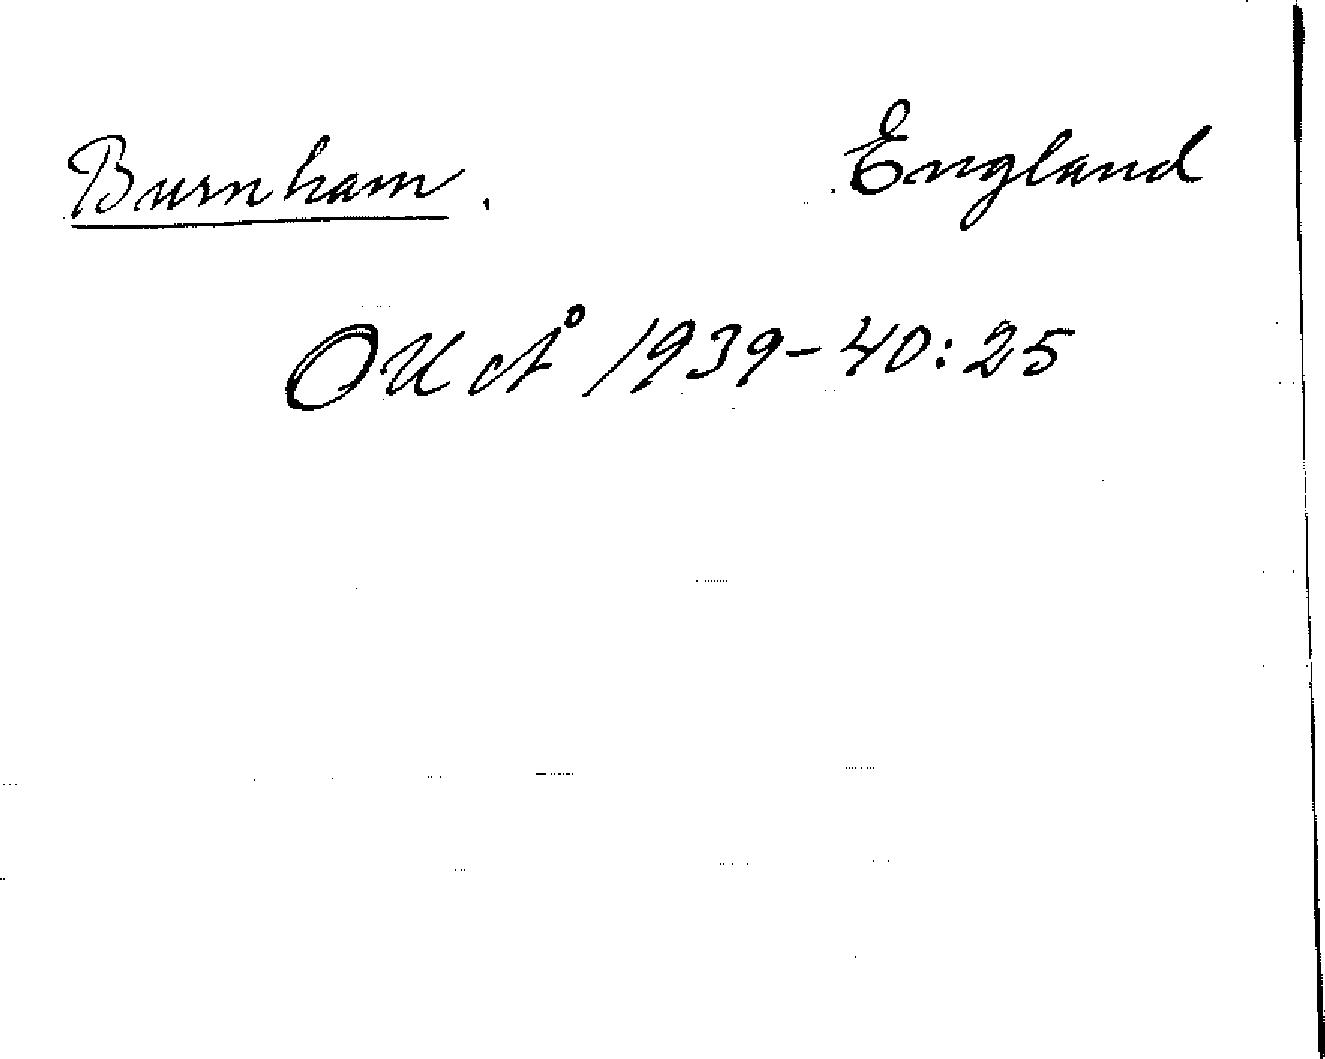 Burnham. England
OUÅ 1939-40:25